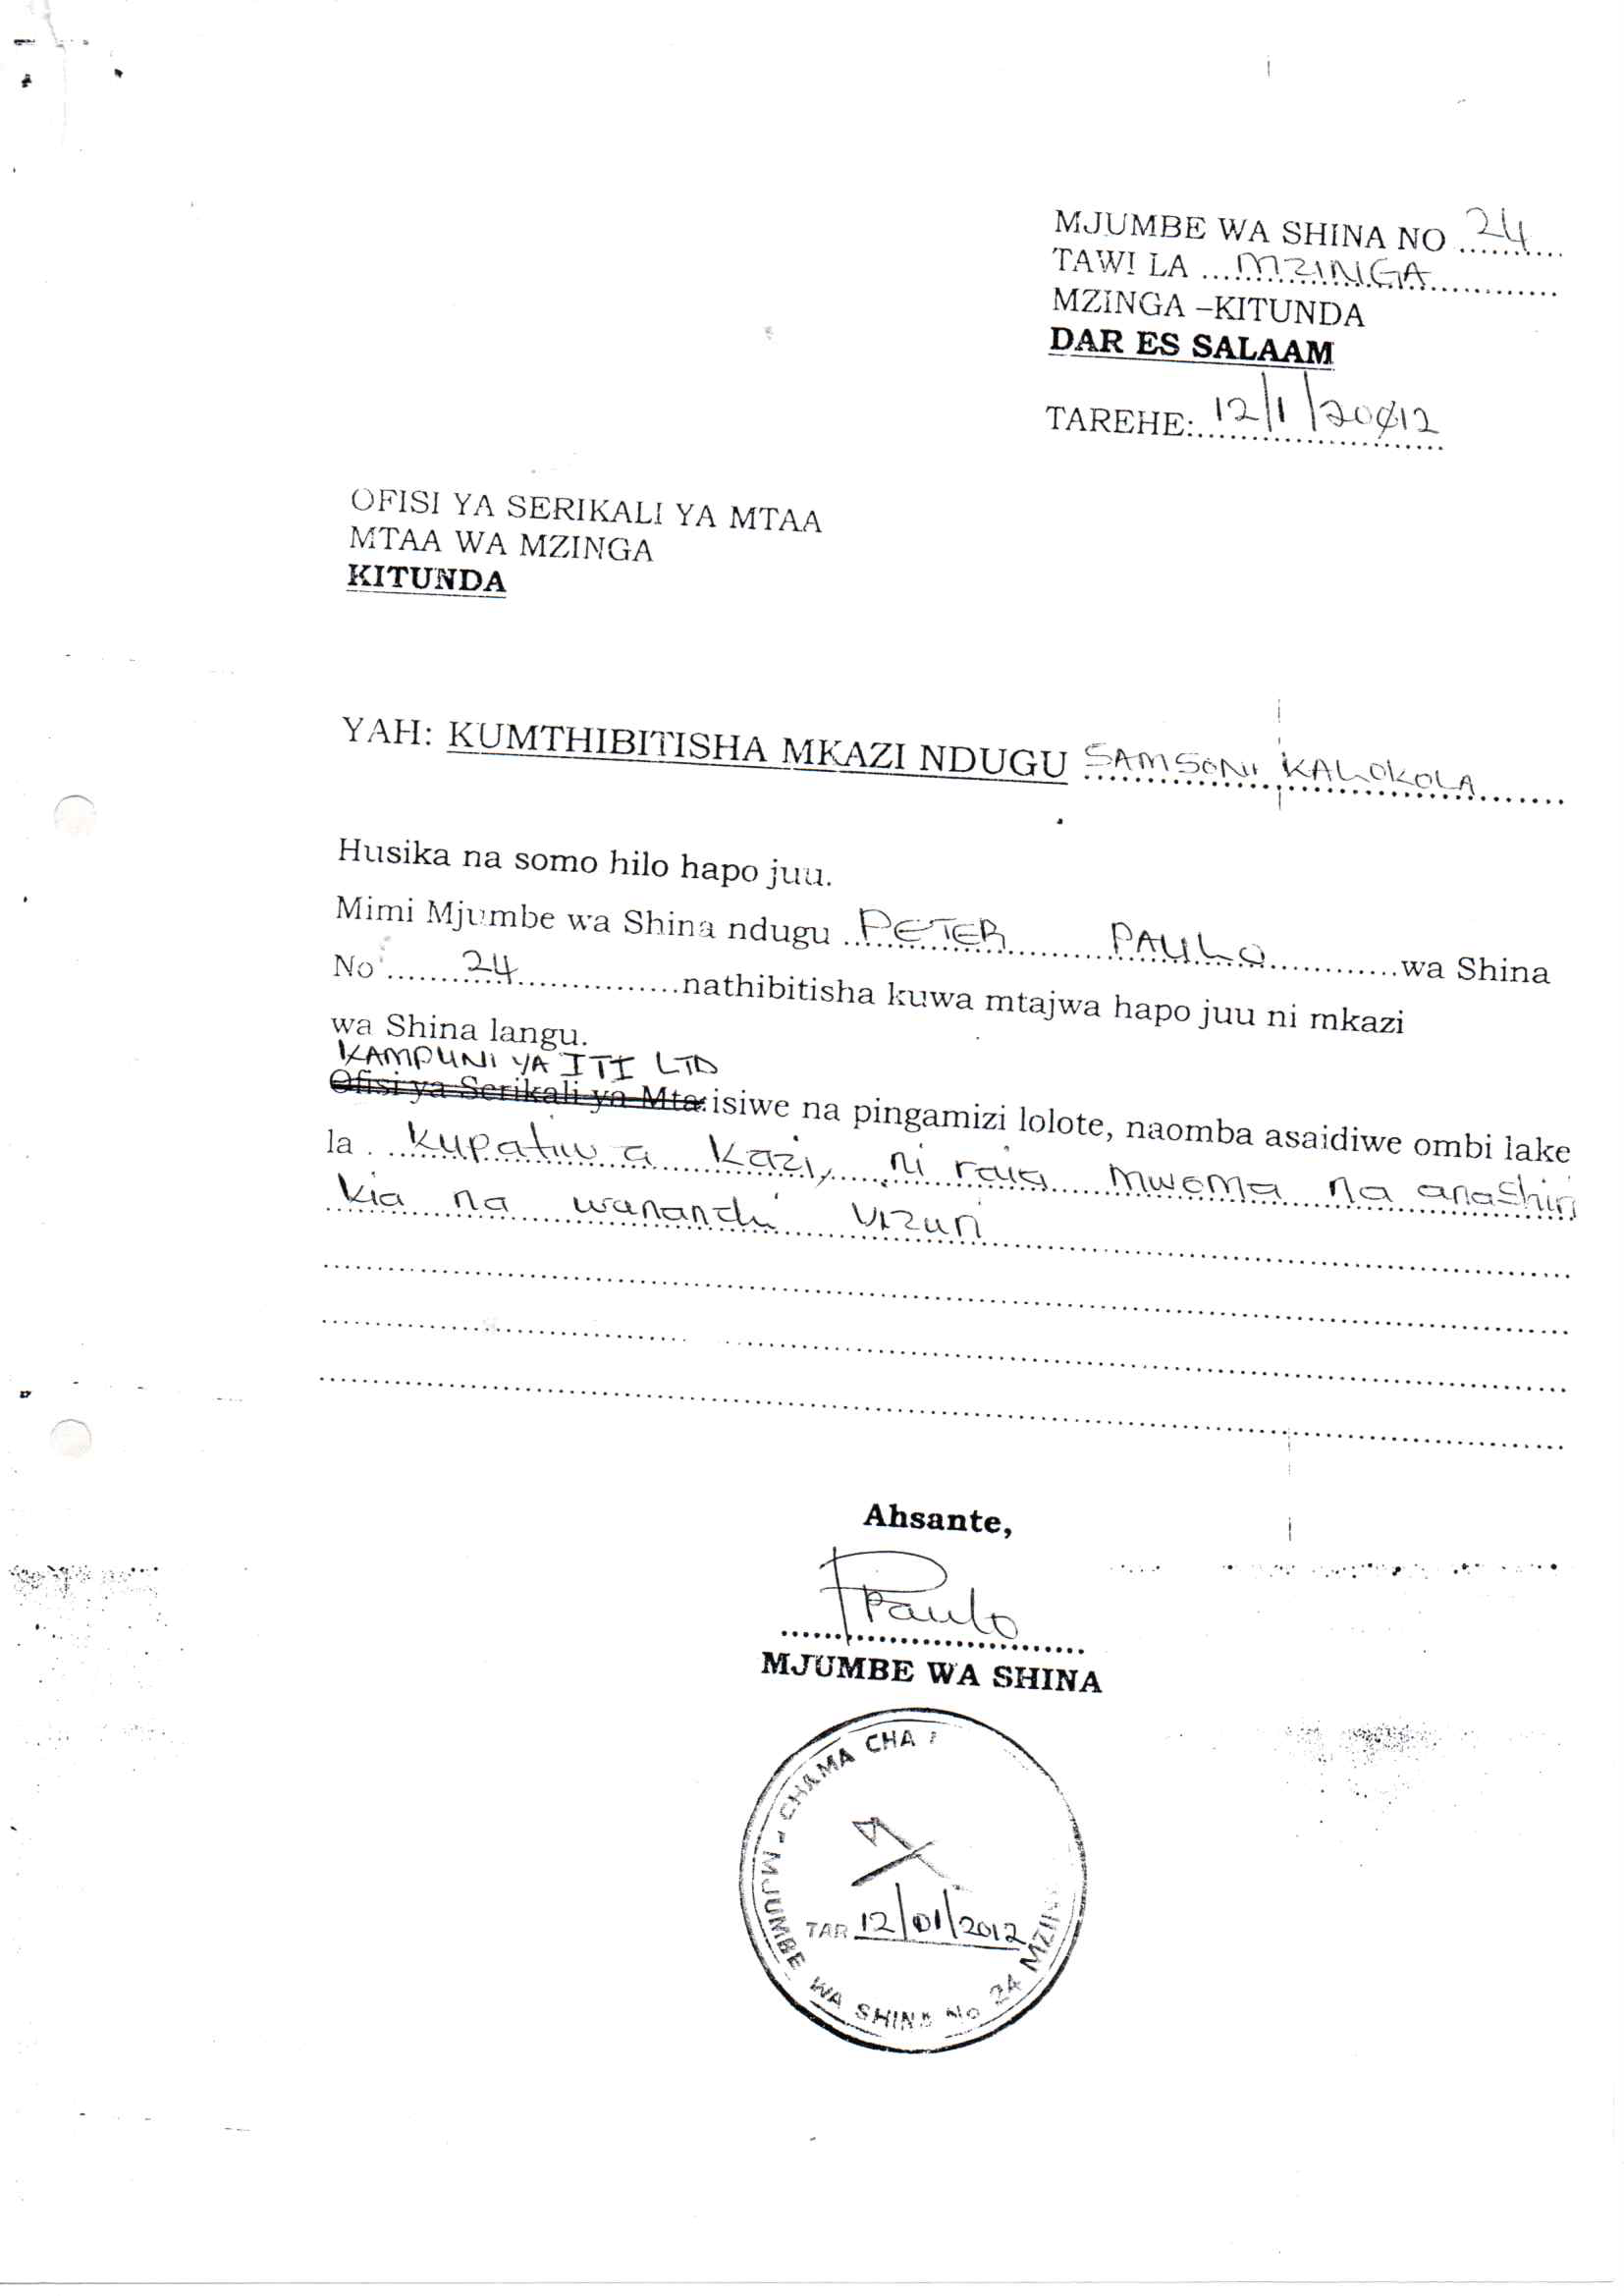 MJUMBE WA SHINA NO 24
TAWI LA MZINGA
MZINGA –KITUNDA
DAR ES SALAAM
TAREHE: 12/1/2012
OFISI YA SERIKALI YA MTAA
MTAA WA MZINGA
KITUNDA
YAH: KUMTHIBITISHA MKAZI NDUGU SAMSONI KALOKOLA
Husika na somo hilo hapo juu.
Mimi Mjumbe wa Shina ndugu PETER PAULO wa Shina
No 24 nathibitisha kuwa mtajwa hapo juu ni mkazi
wa Shina langu.
KAMPUNI YA ITI LTD
Ofisi ya Serikali ya Mta isiwe na pingamizi lolote, naomba asaidiwe ombi lake
la kupatiwa kazi, ni raia mwema na anashiri
kia na wananchi vizuri
Ahsante,
PPaulo
MJUMBE WA SHINA
CHAMA CHA
TAR 12/01/2012
MJUMBE WA SHINA No 24